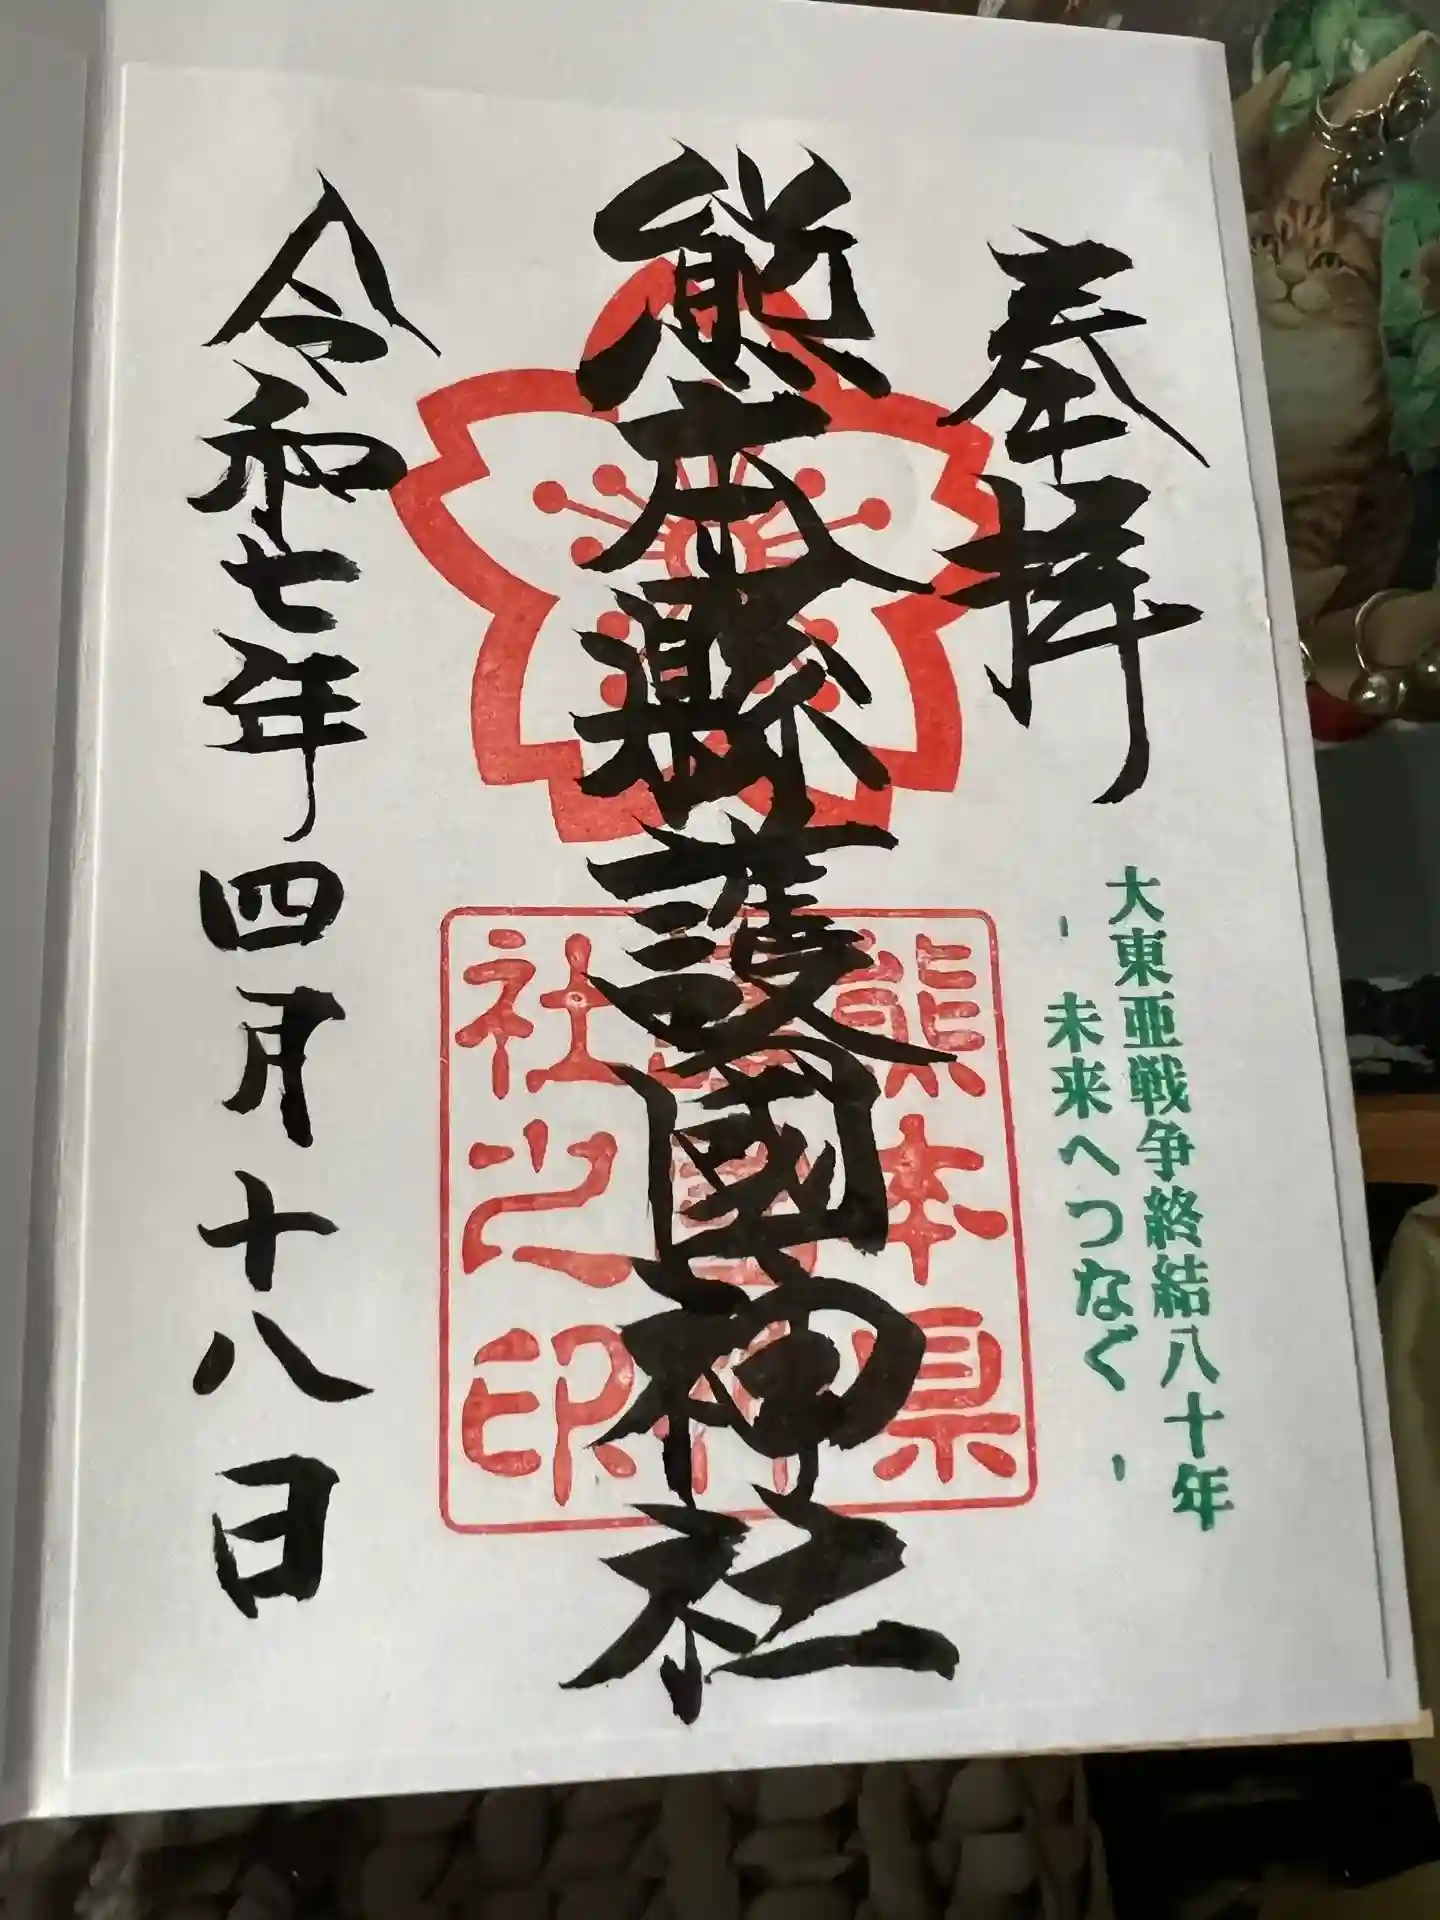 奉拝
大東亜戦争終結八十年
- 未来へつなぐ -
熊本縣護國神社
熊本県
社之印
令和七年四月十八日